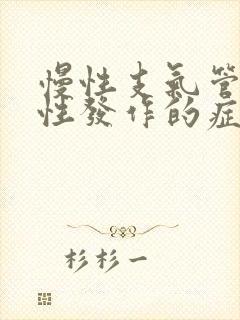 慢性支氣管
性發作的症
杉杉一